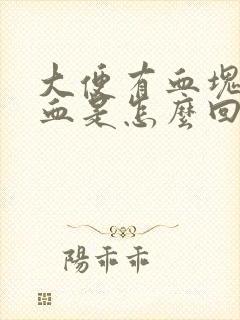 大便有血塊
血是怎麼回
陽乖乖